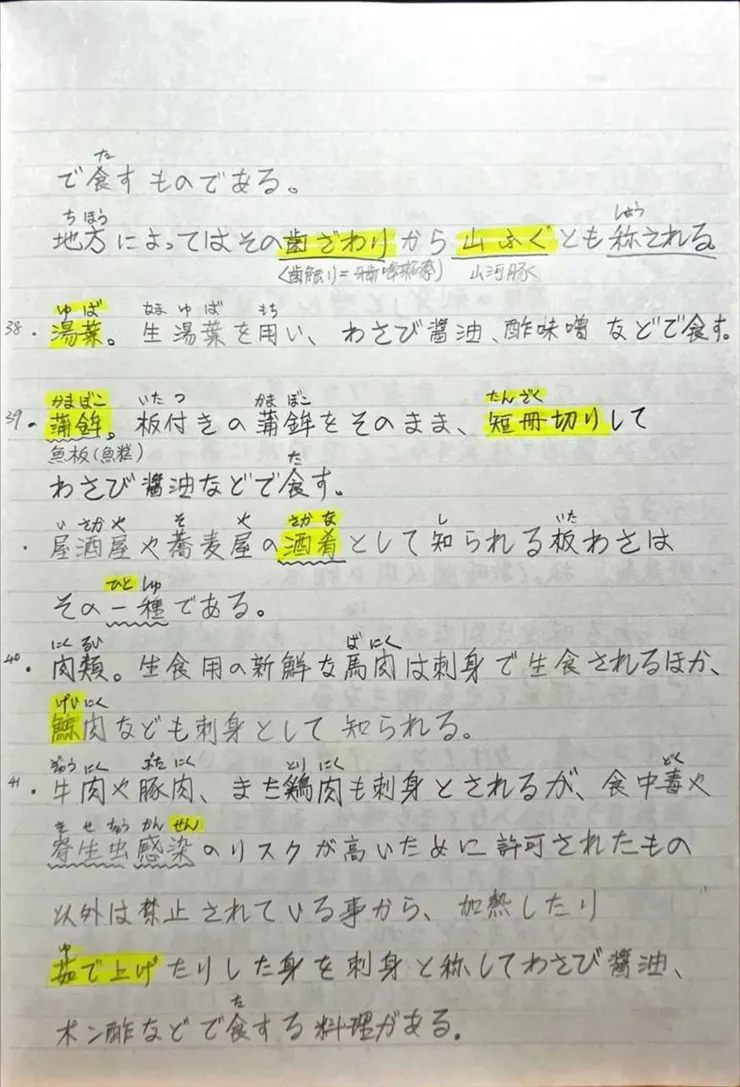 た
で食すものである。
ちほう しょう
地方によってはその歯ざわりから山ふぐとも称される。
(歯触り= 山河豚
ゆば なまゆば もち
38. 湯葉。生湯葉を用い、わさび醤油、酢味噌などで食す。
かまぼこ いたつ かまぼこ たんざく
39. 蒲鉾。板付きの蒲鉾をそのまま、短冊切りして
魚板(魚糕)
た
わさび醤油などで食す。
いざかや そ や さかな し いた
・居酒屋や蕎麦屋の酒肴として知られる板わさは
ひとしゅ
その一種である。
にくるい ばにく
40. 肉類。生食用の新鮮な馬肉は刺身で生食されるほか、
げいにく
鯨肉なども刺身として知られる。
ぎゅうにく ぶたにく とりにく どく
41. 牛肉や豚肉、また鶏肉も刺身とされるが、食中毒や
きせいちゅうかんせん
寄生虫感染のリスクが高いために許可されたもの
以外は禁止されている事から、加熱したり
ゆ
茹で上げたりした身を刺身と称してわさび醤油、
た
ポン酢などで食する料理がある。